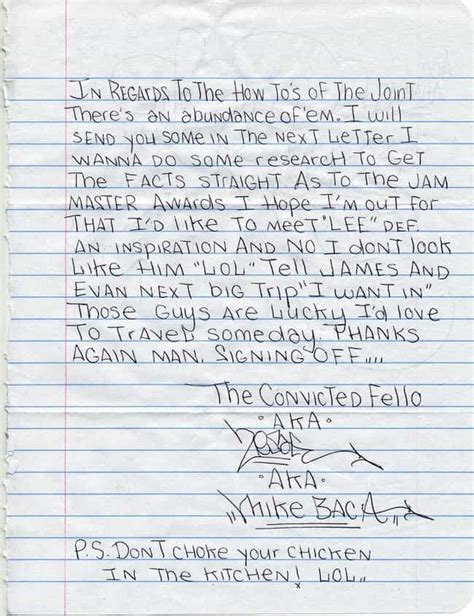 In Regards To The How To's of The Joint
There's an abundance of 'em. I will
send you some in The next letter I
wanna do some research To Get
The facts straight As to The Jam
Master Awards I Hope I'm out for
That I'd like to meet "Lee" Def.
An inspiration And No I dont look
Like Him "LOL" Tell James And
Evan Next Big Trip "I want in"
Those Guys Are Lucky I'd love
To Travel someday. Thanks
Again man. Signing off....
The Convicted Fello
·AKA·
·AKA·
"Mike Baca"
P.S. Dont choke your chicken
in The kitchen! LOL..